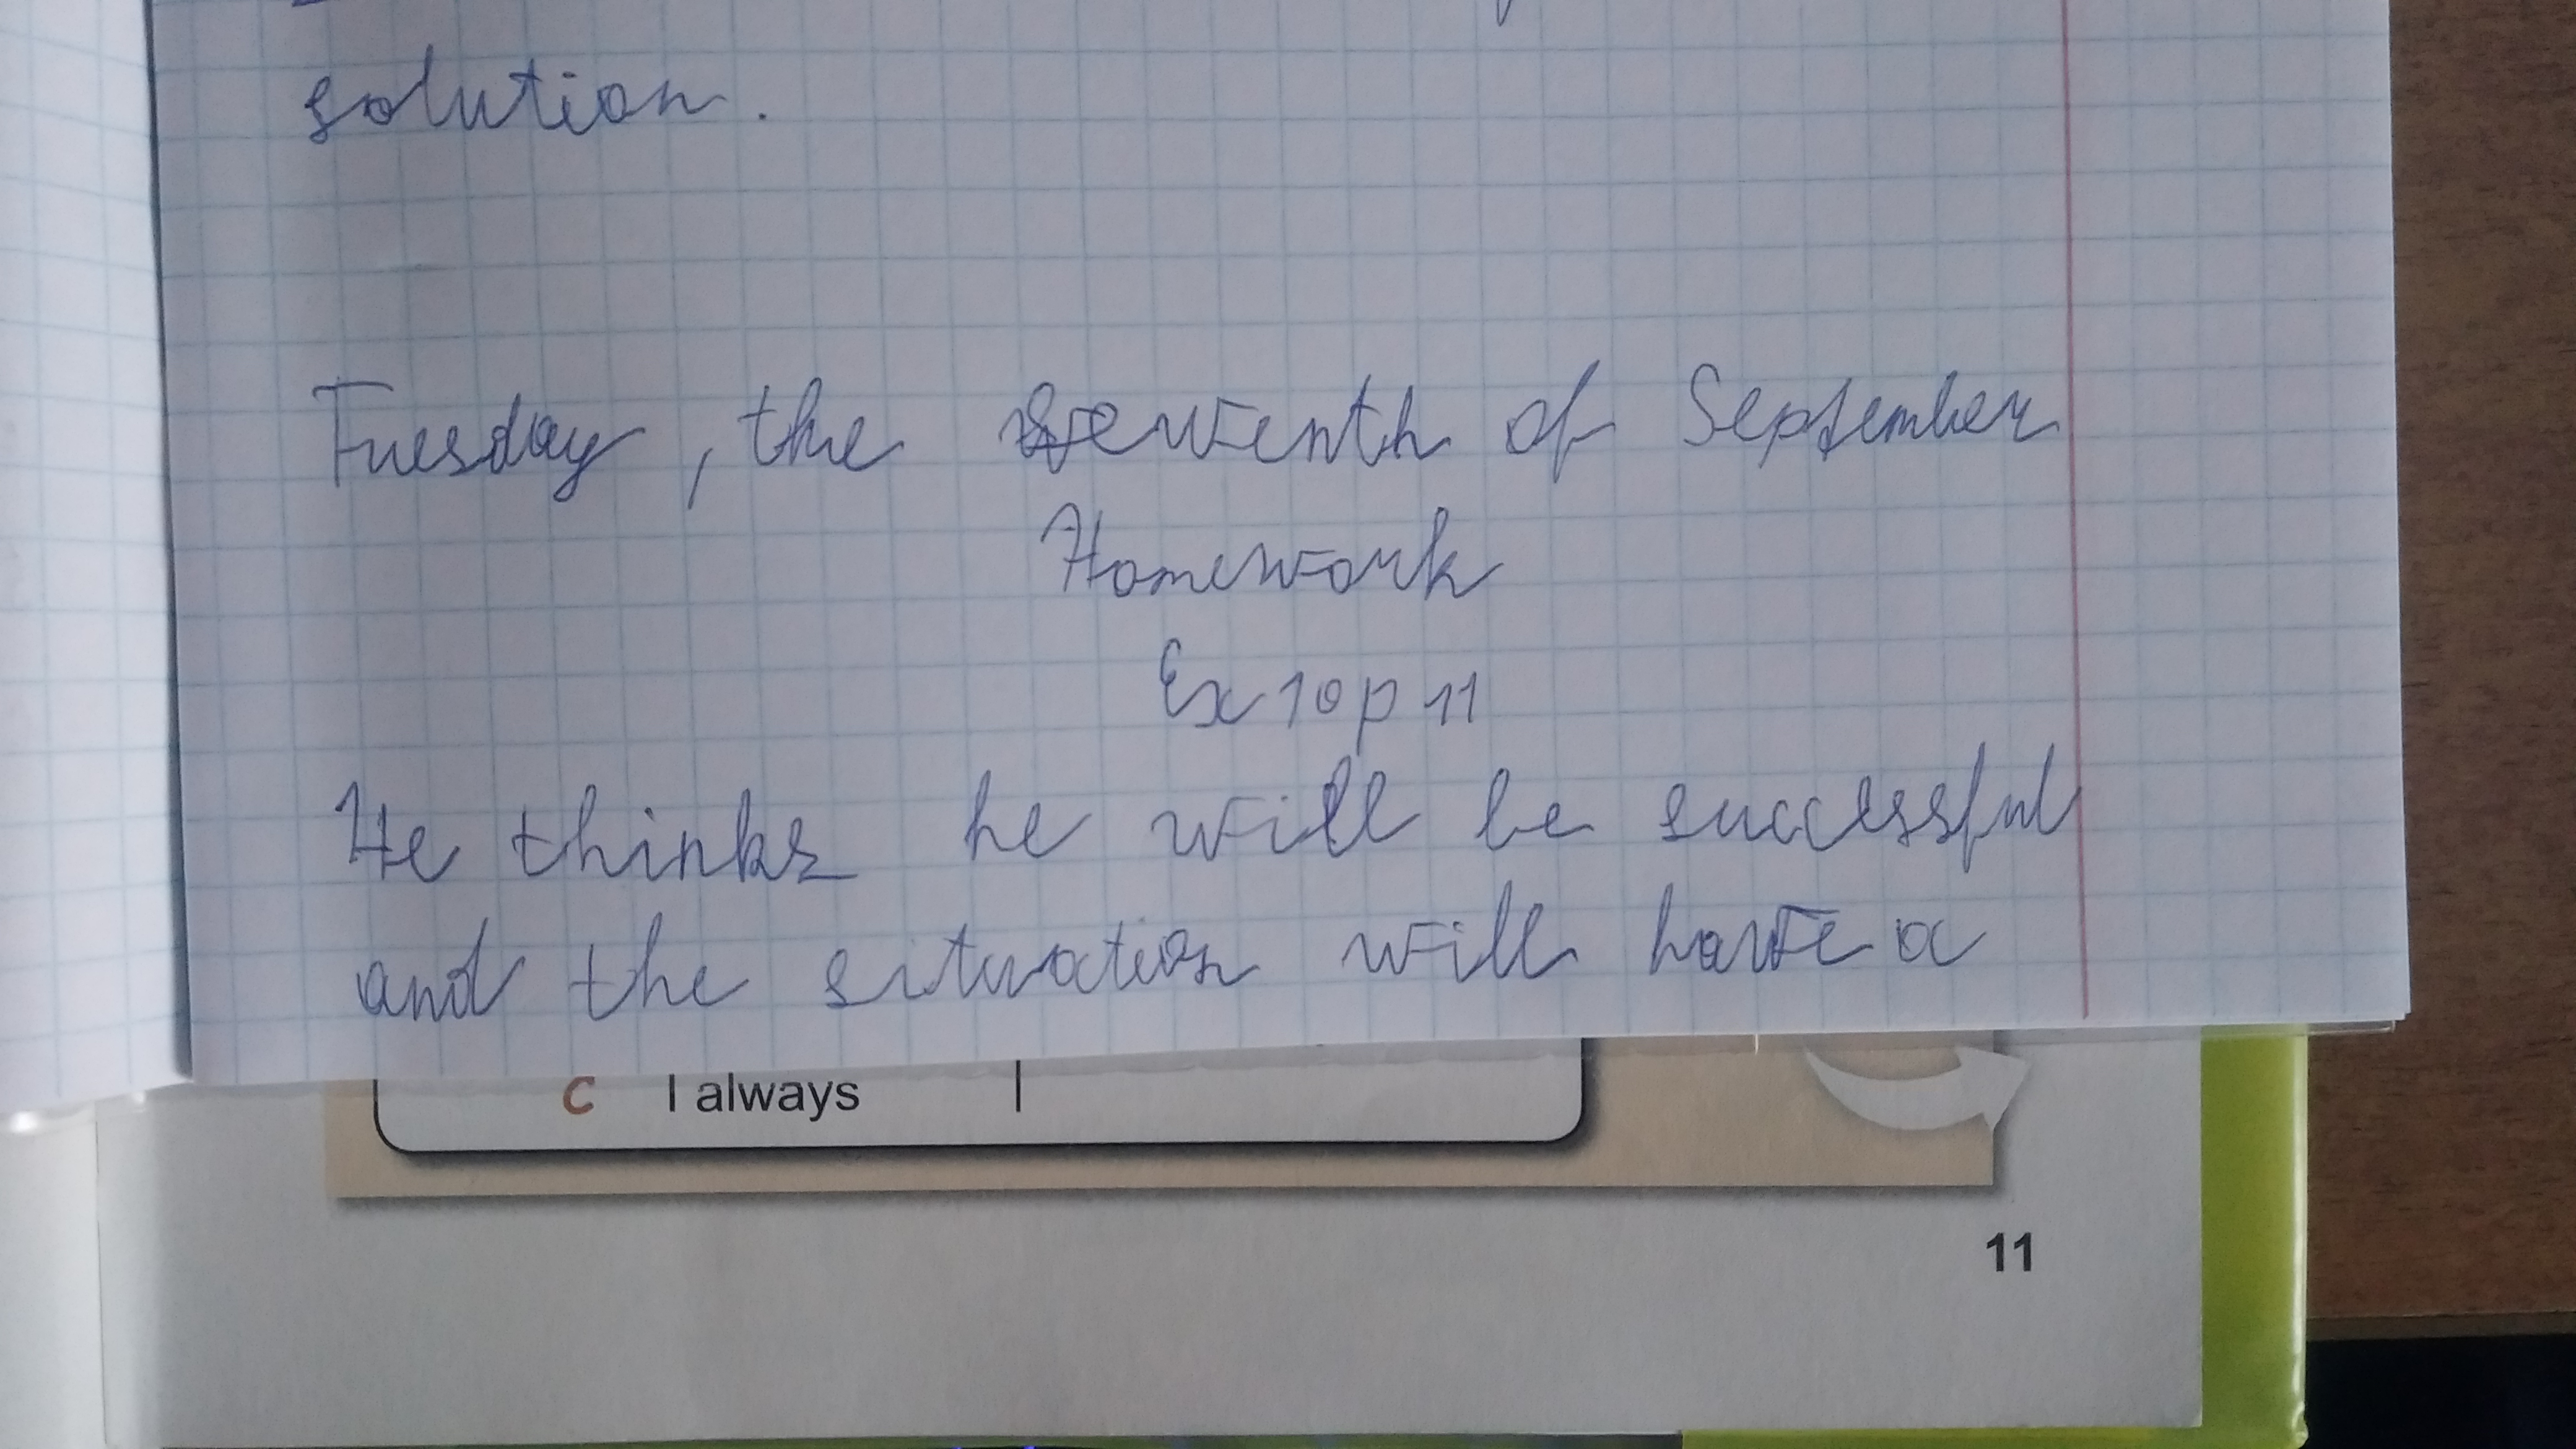 solution.
Tuesday, the seventh of September
Homework
Ex 10 p 11
He thinks he will be successful
and the situation will have a
C I always
11